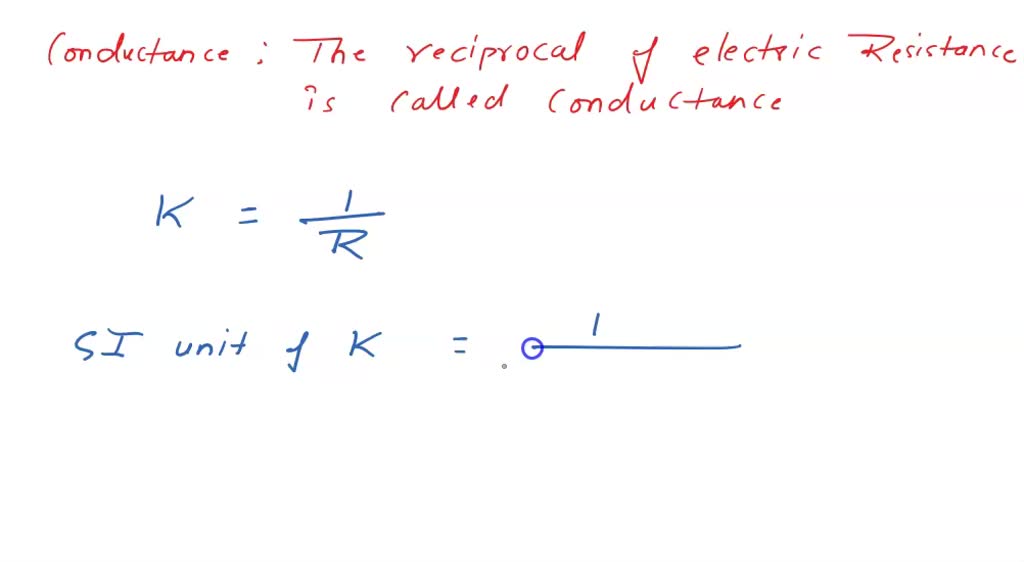 Conductance : The reciprocal of electric Resistance
is called Conductance
K = 1/R
SI unit of K = 1/